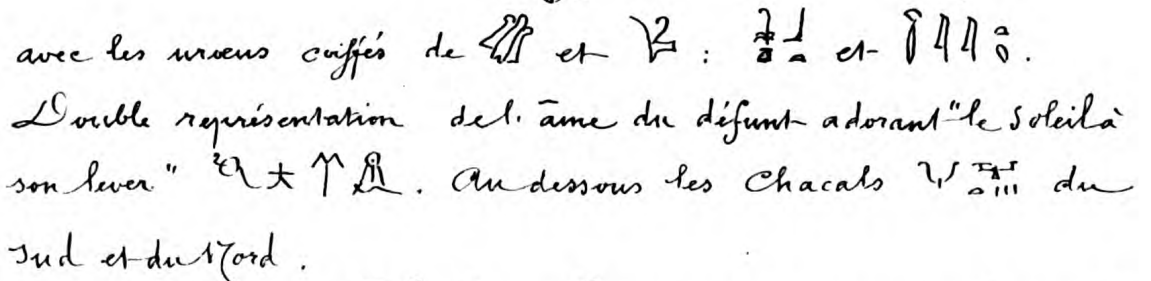 avec les uraeus coiffés de et : et .
Double représentation de l'âme du défunt adorant "le Soleil à
son lever" . Au dessous les Chacals du
Sud et du Nord .